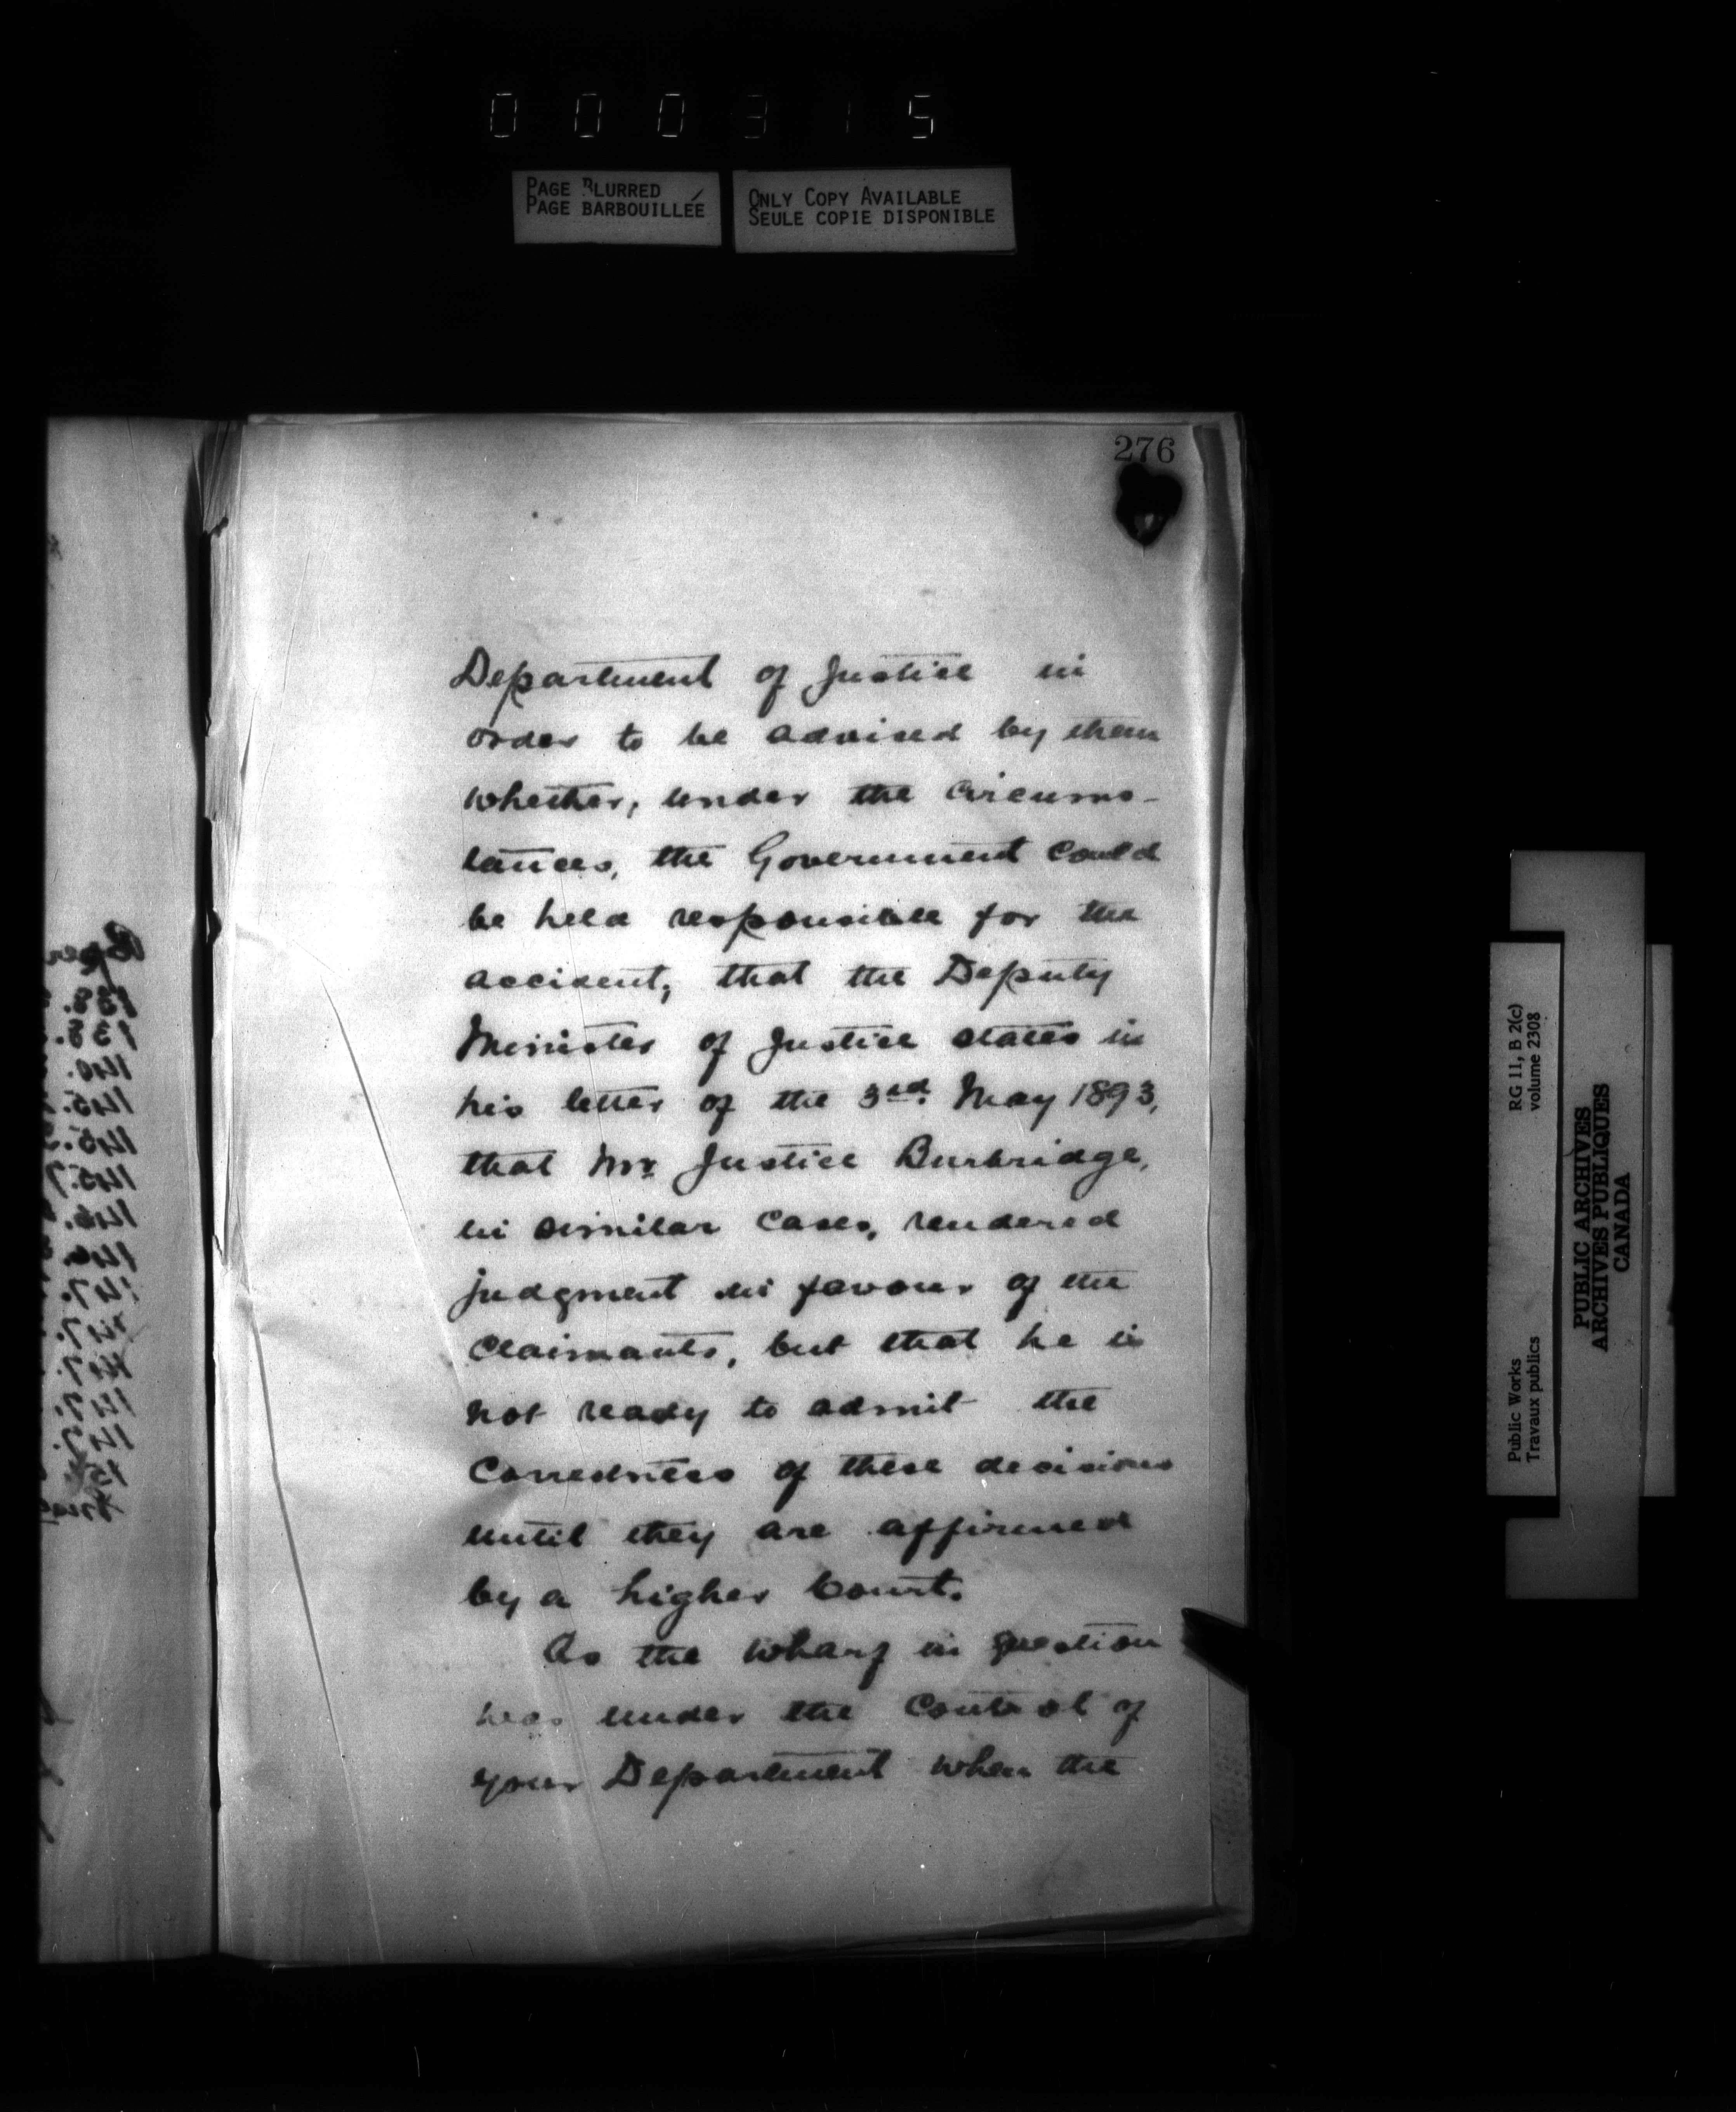 000315
PAGE BLURRED
PAGE BARBOUILLÉE
ONLY COPY AVAILABLE
SEULE COPIE DISPONIBLE
276
Department of Justice in
order to be advised by them
whether, under the circums-
tances, the Government could
be held responsible for the
accident, that the Deputy
Minister of Justice states in
his letter of the 3rd. May 1893,
that Mr. Justice Burbridge,
in similar cases, rendered
judgment in favour of the
claimants, but that he is
not ready to admit the
correctness of these decisions
until they are affirmed
by a higher Court.
As the wharf in question
was under the control of
your Department when the
RG 11, B 2(c)
volume 2308
Public Works
Travaux publics
PUBLIC ARCHIVES
ARCHIVES PUBLIQUES
CANADA